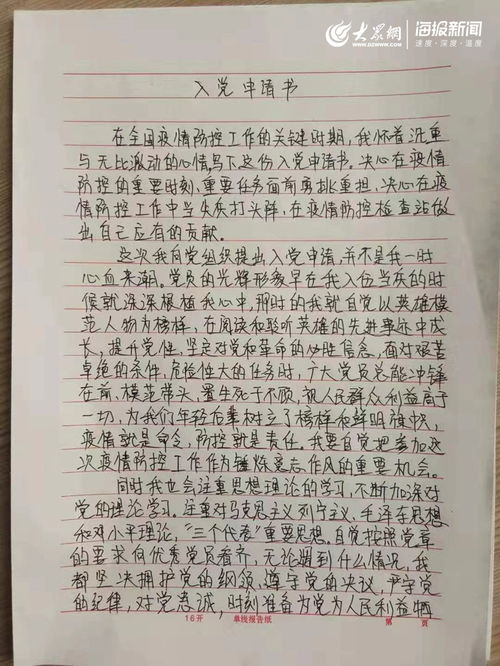 大众网
WWW.DZWWW.COM
海报新闻
速度·深度·温度
入党申请书
在全国疫情防控工作的关键时期，我怀着沉重
与无比激动的心情写下这份入党申请书。决心在疫情
防控的重要时刻、重要任务面前勇挑重担，决心在疫
情防控工作中当先兵打头阵，在疫情防控检查站做
出自己应有的贡献。
这次我向党组织提出入党申请，并不是我一时
心血来潮。党员的光辉形象早在我入伍当兵的时
候就深深根植我心中，那时的我就自觉以英雄模
范人物为榜样，在阅读和聆听英雄的先进事迹中成
长，提升党性，坚定对党和革命的必胜信念，面对艰苦
卓绝的条件，危险性大的任务时，广大党员总能冲锋
在前、模范带头、置生死于不顾，视人民群众利益高于
一切，为我们年轻后辈树立了榜样和鲜明旗帜，
疫情就是命令，防控就是责任。我要自觉把参加这
次疫情防控工作作为锤炼意志作风的重要机会。
同时我也会注重思想理论的学习，不断加深对
党的理论学习。注重对马克思主义列宁主义、毛泽东思想
和邓小平理论，“三个代表”重要思想。自觉按照党章
的要求向优秀党员看齐，无论遇到什么情况，我
都坚决拥护党的纲领，遵守党的决议，严守党
的纪律，对党忠诚，时刻准备为党为人民利益牺
16开 单线报告纸 第 页